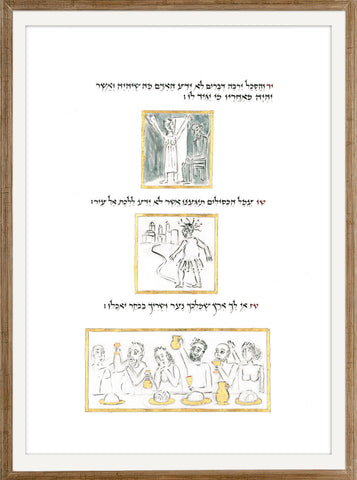 יד והסכל ירבה דברים לא ידע האדם מה שיהיה ואשר
יהיה מאחריו מי יגיד לו:
טו עמל הכסילים תיגענו אשר לא ידע ללכת אל עיר:
טז אי לך ארץ שמלכך נער ושריך בבקר יאכלו: